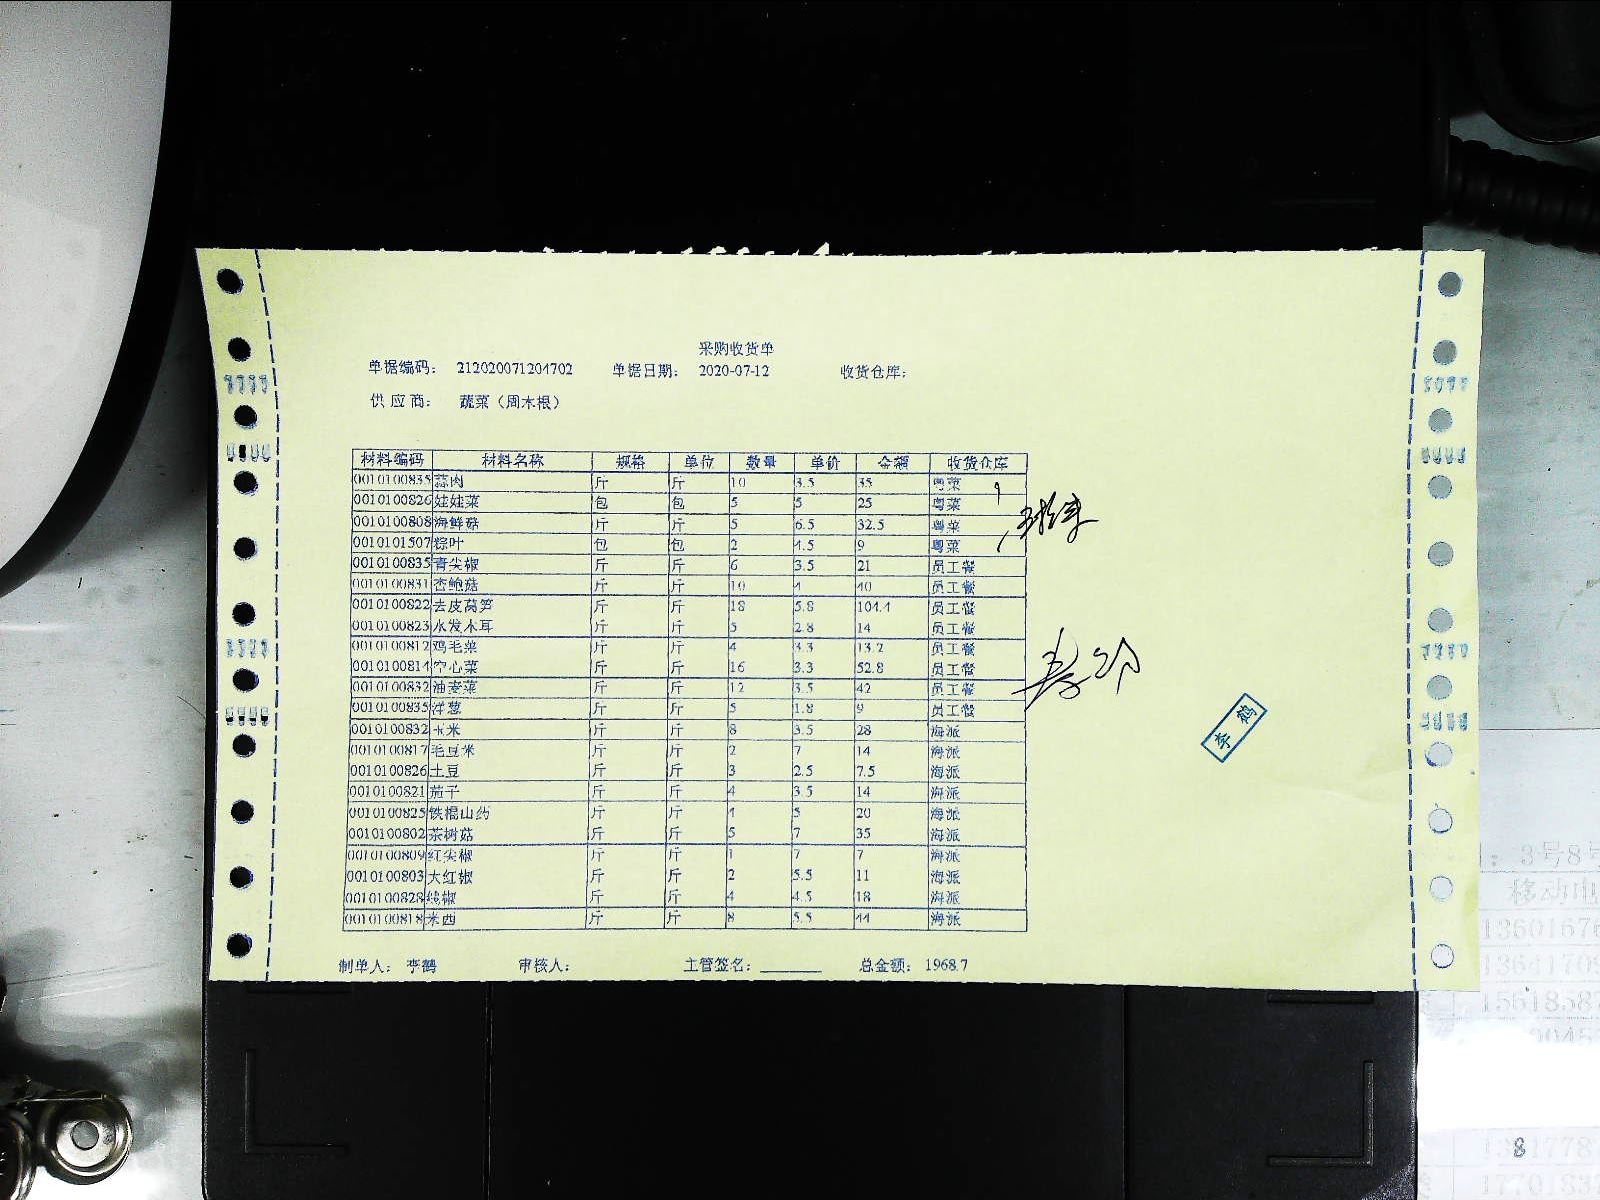 采购收货单
单据编码： 212020071204702 单据日期： 2020-07-12 收货仓库：
供应商： 蔬菜（周木根）
材料编码 材料名称 规格 单位 数量 单价 金额 收货仓库
0010100835 蒜肉 斤 斤 10 3.5 35 粤菜
0010100826 娃娃菜 包 包 5 5 25 粤菜
0010100808 海鲜菇 斤 斤 5 6.5 32.5 粤菜
0010101507 粽叶 包 包 2 4.5 9 粤菜
0010100835 青尖椒 斤 斤 6 3.5 21 员工餐
0010100831 杏鲍菇 斤 斤 10 4 40 员工餐
0010100822 去皮莴笋 斤 斤 18 5.8 104.4 员工餐
0010100823 水发木耳 斤 斤 5 2.8 14 员工餐
0010100812 鸡毛菜 斤 斤 4 3.3 13.2 员工餐
0010100814 空心菜 斤 斤 16 3.3 52.8 员工餐
0010100832 油麦菜 斤 斤 12 3.5 42 员工餐
0010100835 洋葱 斤 斤 5 1.8 9 员工餐
0010100832 玉米 斤 斤 8 3.5 28 海派
0010100817 毛豆米 斤 斤 2 7 14 海派
0010100826 土豆 斤 斤 3 2.5 7.5 海派
0010100821 茄子 斤 斤 4 3.5 14 海派
0010100825 铁棍山药 斤 斤 4 5 20 海派
0010100802 茶树菇 斤 斤 5 7 35 海派
0010100809 红尖椒 斤 斤 1 7 7 海派
0010100803 大红椒 斤 斤 2 5.5 11 海派
0010100828 线椒 斤 斤 4 4.5 18 海派
0010100818 米西 斤 斤 8 5.5 44 海派
制单人： 李鹤 审核人： 主管签名： 总金额： 1968.7
李鹤